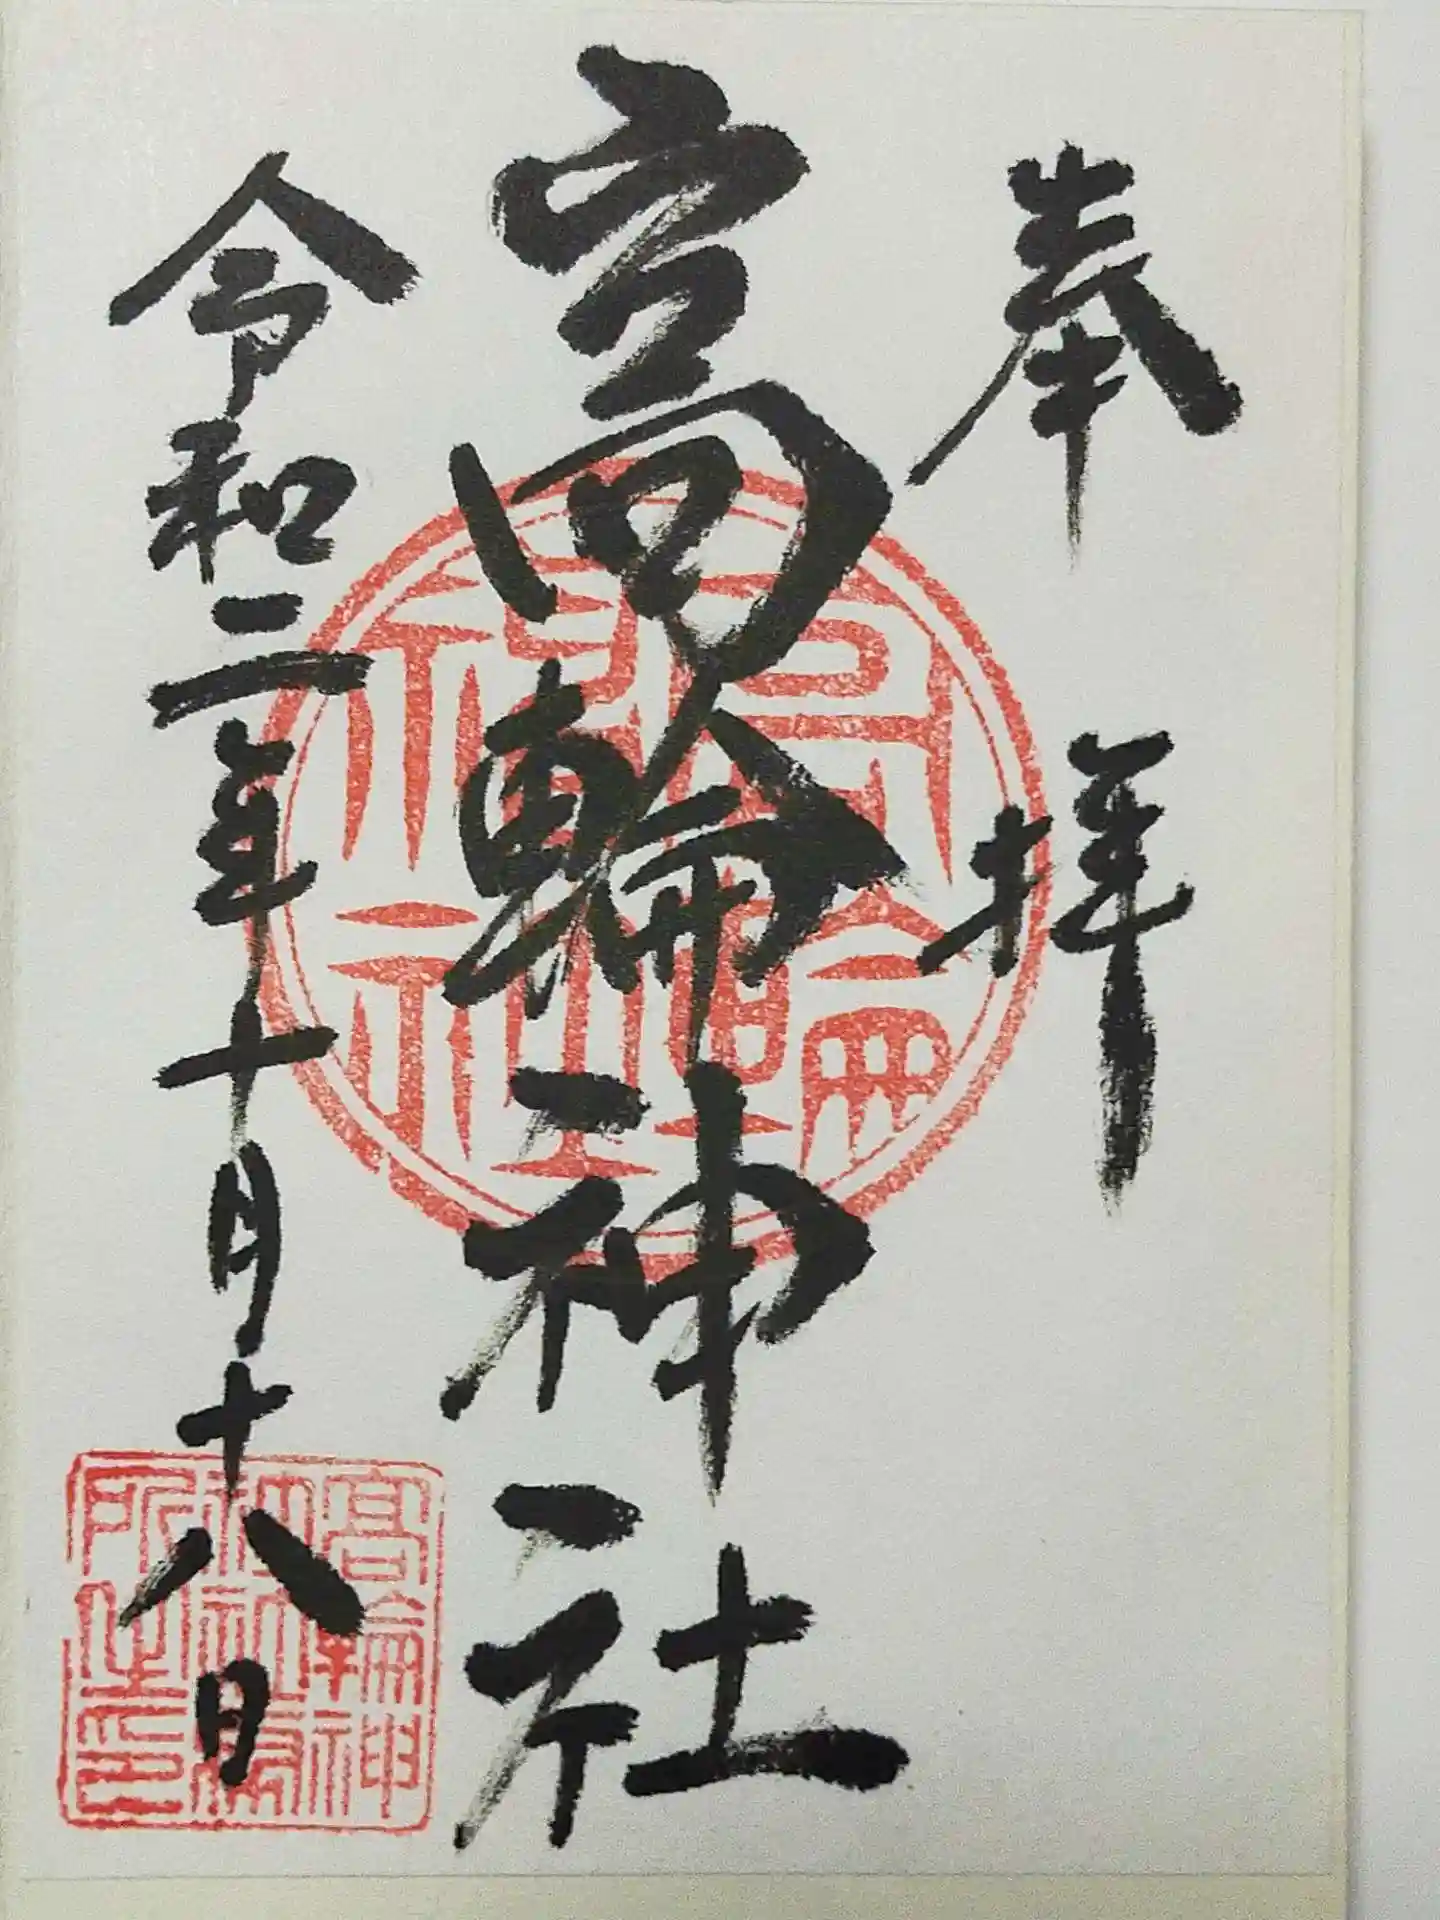 奉拝
高輪神社
令和二年十月十八日
高輪神社
高輪神
社社務
所之印